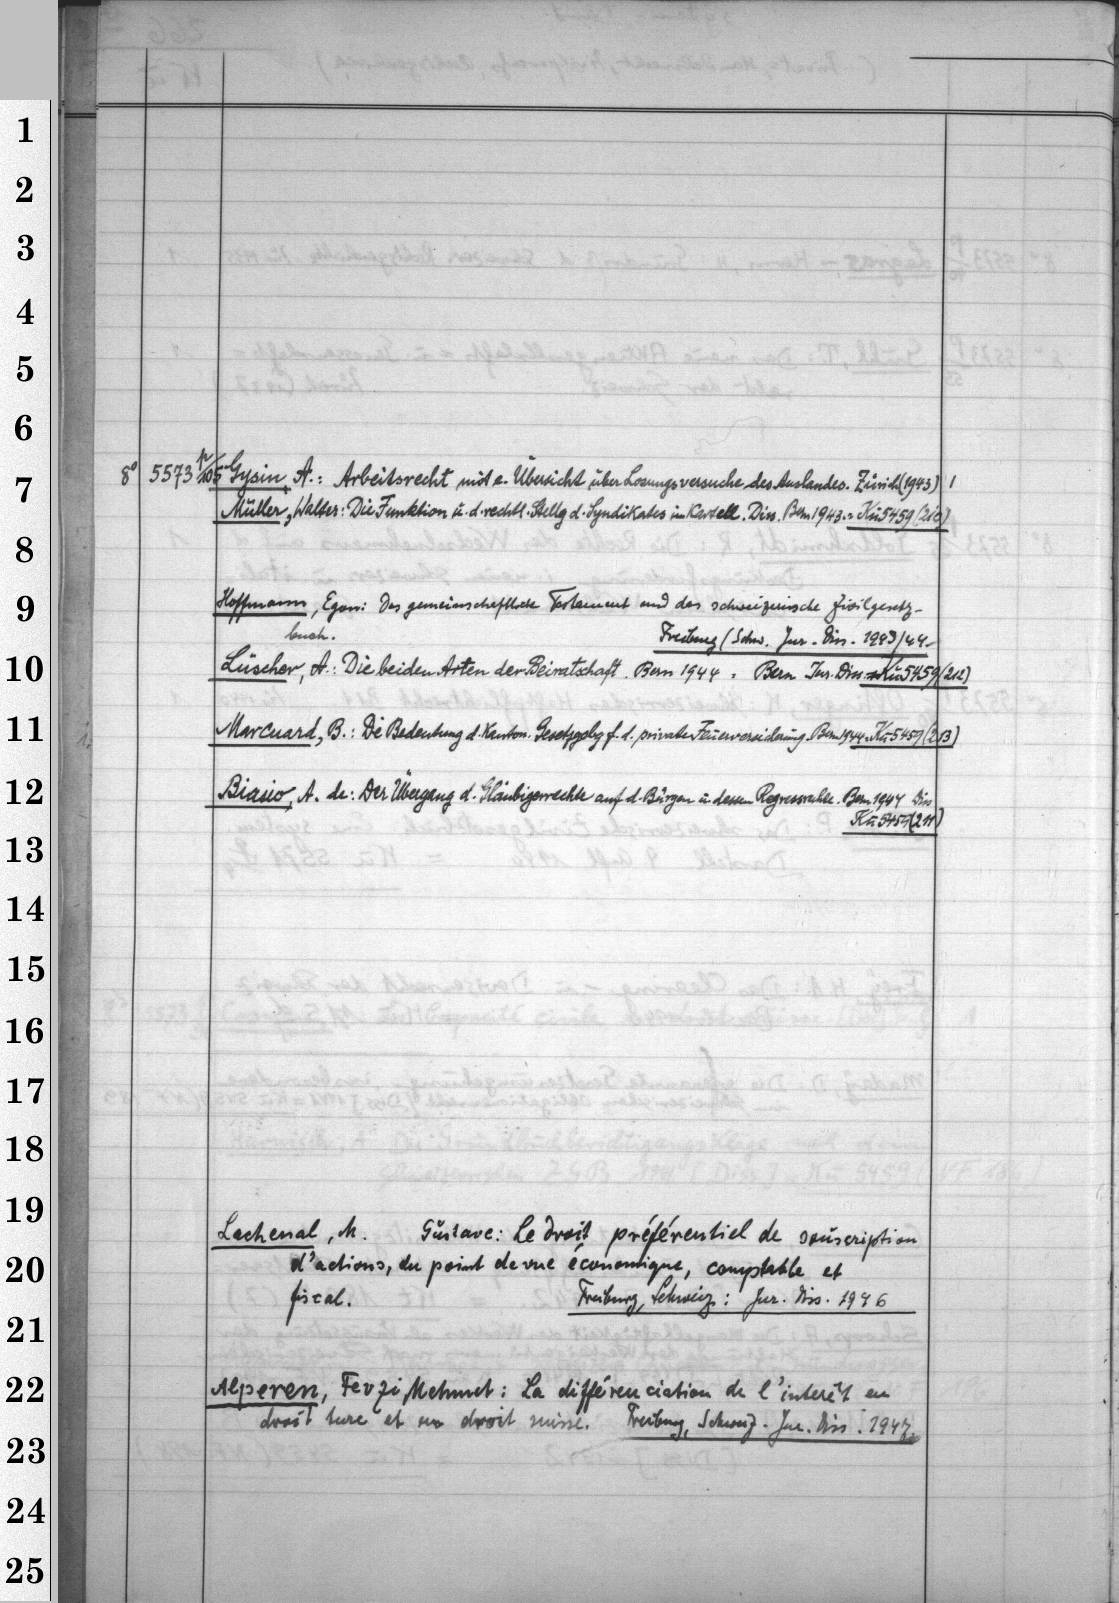 1
2
3
4
5
6
7
8° 5573 p/105 Gysin, A.: Arbeitsrecht mit e. Übersicht über Lösungsversuche des Auslandes. Zürich (1943) 1
Müller, Walter: Die Funktion u. d. rechtl. Stellg d. Syndikates im Kartell. Diss. Bern 1943 = Kü 5459 (210)
8
9
Hoffmann, Egon: Das gemeinschaftliche Testament und das schweizerische Zivilgesetz-
buch. Freiburg (Schw. Jur. Diss. 1943/44
10
Lüscher, A.: Die beiden Arten der Beiratschaft. Bern 1944. Bern Jur. Diss. = Kü 5459 (212)
11
Marcuard, B.: Die Bedeutung d. kanton. Gesetzgebg f. d. private Feuerversicherung. Bern 1944. = Kü 5459 (213)
12
Biasio, A. de: Der Übergang d. Gläubigerrechte auf d. Bürgen u. dessen Regressrechte. Bern 1944 Diss
Kü 5459 (211)
13
14
15
16
17
18
19
Lachenal, M. Gustave: Le droit préférentiel de souscription
20
d'actions, du point de vue économique, comptable et
fiscal. Freiburg, Schweiz: Jur. Diss. 1946
21
22
Alperen, Fevzi Mehmet: La différenciation de l'interêt en
droit turc et en droit suisse. Freiburg, Schweiz. Jur. Diss. 1947.
23
24
25